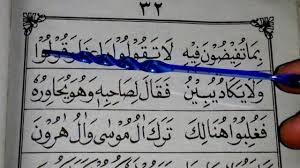 ٣٢
بِمَا تُفِيضُونَ فِيهِ لَا تَقُولُوا رَاعِنَا وَقُولُوا
وَلَا يَكَادُ يُبِينُ فَقَالَ لِصَاحِبِهِ وَهُوَ يُحَاوِرُهُ
فَغُلِبُوا هُنَالِكَ تَرَكَ اٰلُ مُوسٰى وَاٰلُ هٰرُونَ